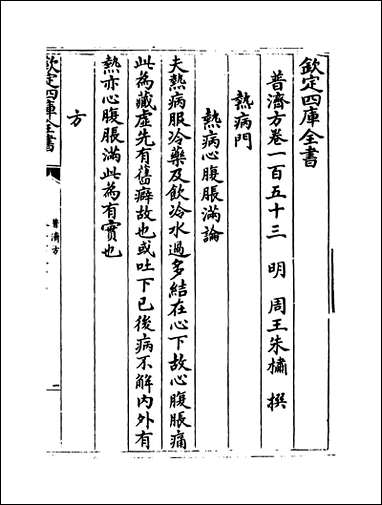 欽定四庫全書
普濟方卷一百五十三　明　周王朱橚　撰
熱病門
熱病心腹脹滿論
夫熱病服冷藥及飲冷水過多結在心下故心腹脹痛
此為臟虛先有舊癖故也或吐下已後病不解內外有
熱亦心腹脹滿此為有實也
方
欽定四庫全書
普濟方
一